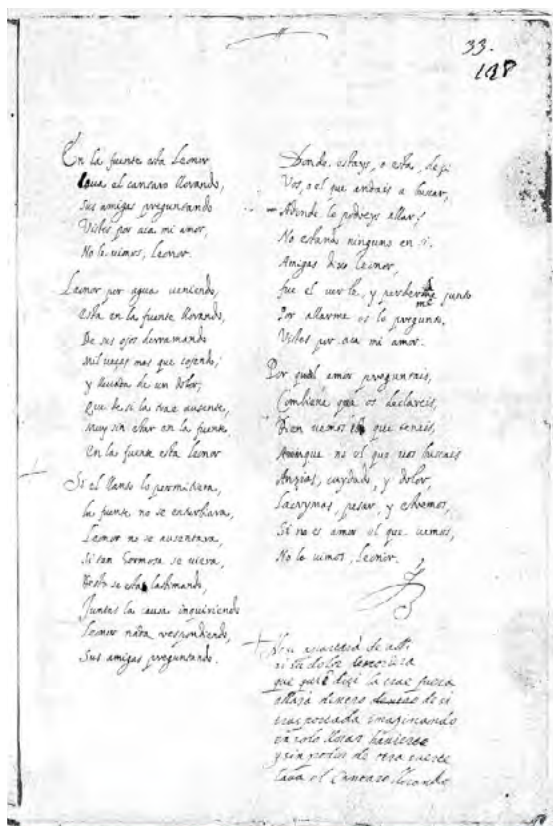 33.
198
En la fuente esta Leonor
Laua el cantaro llorando,
Sus amigas preguntando
Vistes por aca mi amor,
No le uimos, Leonor.
Leonor por agua ueniendo,
esta en la fuente llorando,
De sus ojos derramando
mil veçes mas que cojendo;
y lleuada de un dolor,
que de si la trae ausente,
muy sin estar en la fuente
En la fuente esta Leonor
Si el llanto lo permitiera,
la fuente no se enturbiara,
Leonor no se ausentara,
si tan hermosa se uiera,
esta se esta lastimando,
Juntas la causa inquiriendo
Leonor nada respondiendo,
Sus amigas preguntando.
Donde estays, o esta, deçi
Vos, o el que andais a buscar,
Adonde le podreys allar,
No estando ninguno en si.
Amigas dixo Leonor,
fue el verle, y perderme junto
Por allarme os lo pregunto,
Vistes por aca mi amor.
Por qual amor preguntais,
Combiene que os declareis,
Bien uemos el que teneis,
Aunque no el que uos buscais
Anzias, cuydado, y dolor,
Lacrymas, pesar, y estremos,
Si no es amor el que uemos,
No le uimos, Leonor.
ni tu dolor
que de si la trae fuera
de si
transportada imajinando
en solo llorar
y sin poder de otra suerte
laua el Cantaro llorando